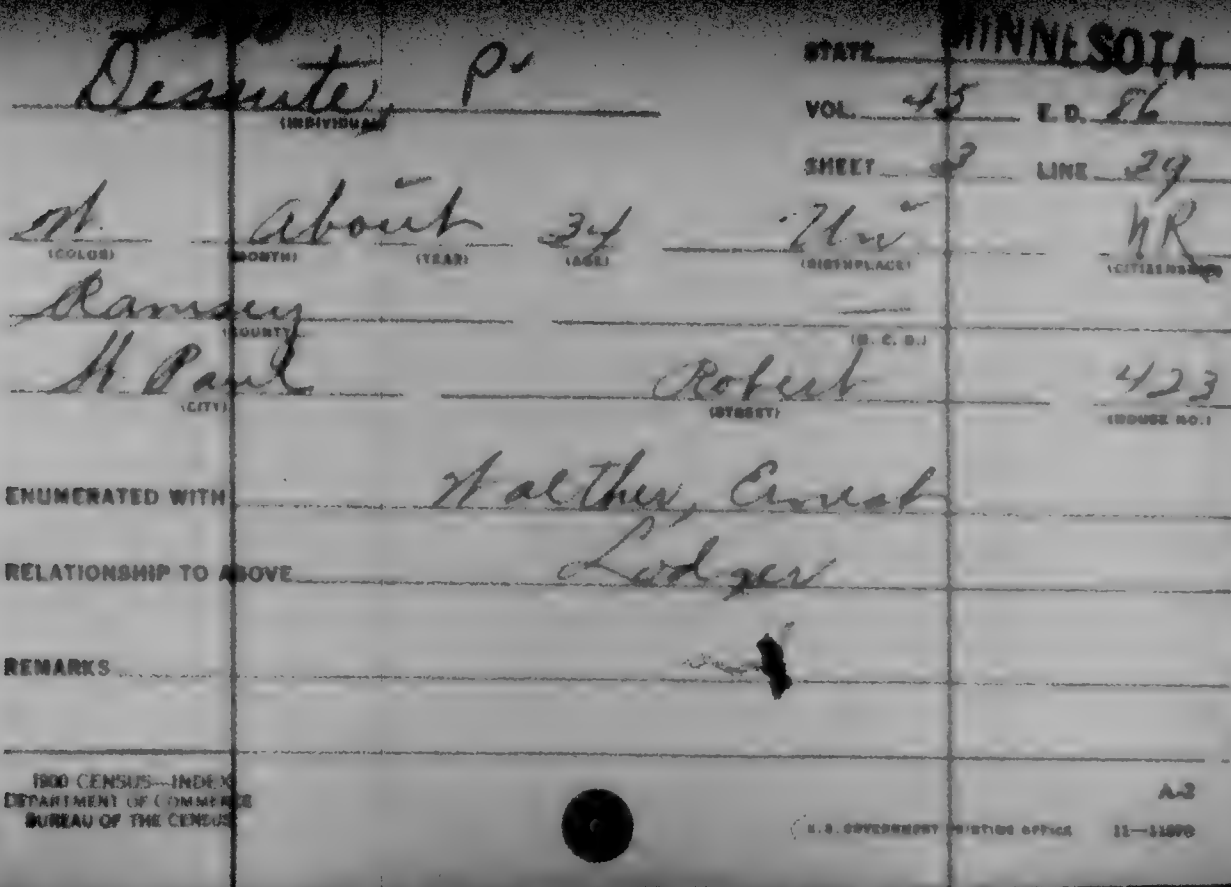 P
(INDIVIDUAL)
STATE MINNESOTA
VOL. 45 E. D. 86
SHEET 3 LINE
W. About 34 Un NR
(COLOR) (MONTH) (YEAR) (AGE) (BIRTHPLACE) (CITIZENSHIP)
Ramsey
(COUNTY) (M. C. D.)
St. Paul Robert 423
(CITY) (STREET) (HOUSE NO.)
ENUMERATED WITH Walther, Ernest
RELATIONSHIP TO ABOVE Lodger
REMARKS
1900 CENSUS—INDEX
DEPARTMENT OF COMMERCE
BUREAU OF THE CENSUS
A-2
U.S. GOVERNMENT PRINTING OFFICE